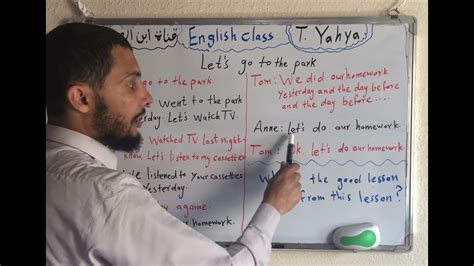 قناة ابن
English class
T. Yahya
Let's go to the park
go to the park.
Went to the park
Let's Watch TV.
Watched TV last night
Let's listen to my cassettes
listened to Your cassettes
Yesterday.
game.
homework.
Tom: We did our homework
Yesterday and the day before
and the day before....
Anne: Let's do our homework.
Tom: Let's do our homework
the good lesson
from this lesson?